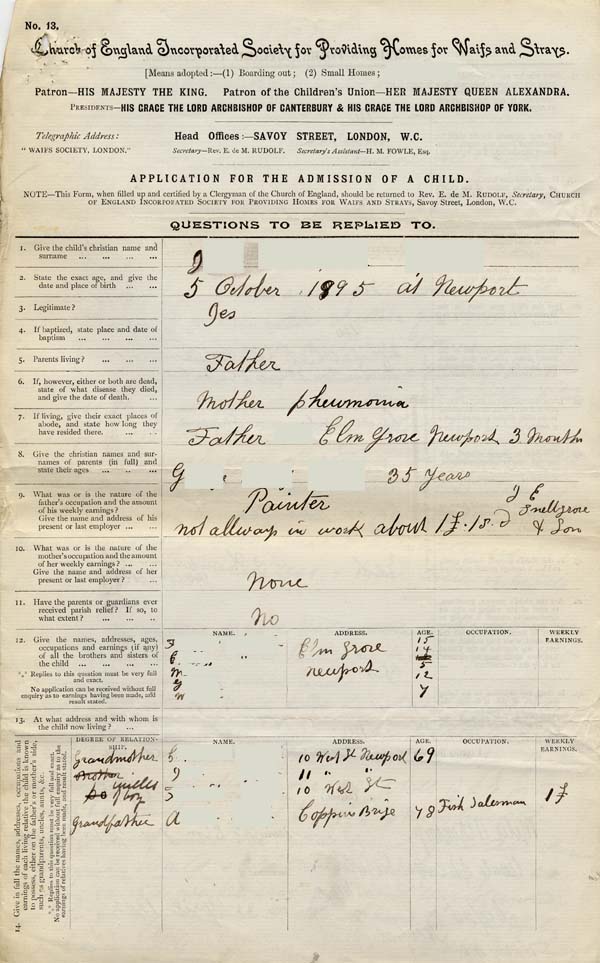 No. 13.
Church of England Incorporated Society for Providing Homes for Waifs and Strays.
[Means adopted:—(1) Boarding out; (2) Small Homes;
Patron—HIS MAJESTY THE KING. Patron of the Children's Union—HER MAJESTY QUEEN ALEXANDRA.
Presidents—HIS GRACE THE LORD ARCHBISHOP OF CANTERBURY & HIS GRACE THE LORD ARCHBISHOP OF YORK.
Telegraphic Address: Head Offices:—SAVOY STREET, LONDON, W.C.
"WAIFS SOCIETY, LONDON." Secretary—Rev. E. de M. RUDOLF. Secretary's Assistant—H. M. FOWLE, Esq.
APPLICATION FOR THE ADMISSION OF A CHILD.
NOTE—This Form, when filled up and certified by a Clergyman of the Church of England, should be returned to Rev. E. de M. Rudolf, Secretary, Church
of England Incorporated Society for Providing Homes for Waifs and Strays, Savoy Street, London, W.C.
QUESTIONS TO BE REPLIED TO.
1. Give the child's christian name and
surname ... ... ... ...
J
2. State the exact age, and give the
date and place of birth ... ...
5 October 1895 at Newport
3. Legitimate?
Yes
4. If baptized, state place and date of
baptism ... ... ... ...
5. Parents living? ... ... ...
Father
6. If, however, either or both are dead,
state of what disease they died,
and give the date of death. ...
Mother pheumonia
7. If living, give their exact places of
abode, and state how long they
have resided there. ... ...
Father Elm Grove Newport 3 Months
8. Give the christian names and sur-
names of parents (in full) and
state their ages ... ... ...
G 35 Years
9. What was or is the nature of the
father's occupation and the amount
of his weekly earnings? ...
Give the name and address of his
present or last employer ... ...
Painter
not allways in work about 1£.1s.
J E
Snellgrove
& Son
10. What was or is the nature of the
mother's occupation and the amount
of her weekly earnings? ... ...
Give the name and address of her
present or last employer? ...
None
11. Have the parents or guardians ever
received parish relief? If so, to
what extent? ... ... ...
No
12. Give the names, addresses, ages,
occupations and earnings (if any)
of all the brothers and sisters of
the child ... ... ... ...
*** Replies to this question must be very full
and exact.
No application can be received without full
enquiry as to earnings having been made, and
result stated.
NAME. ADDRESS. AGE. OCCUPATION. WEEKLY EARNINGS.
Elm Grove 15
Newport 14
M 5
12
W 7
13. At what address and with whom is
the child now living? ...
14. Give in full the names, addresses, occupations, and
earnings of each living relative the child is known
to possess, either on the father's or mother's side,
such as grandparents, uncles, aunts, &c.
*** Replies to this question must be very full and exact.
No application can be received without full enquiry as to the
earnings of relatives having been made, and result stated.
DEGREE OF RELATION-SHIP. NAME. ADDRESS. AGE. OCCUPATION. WEEKLY EARNINGS.
Grandmother 10 West St Newport 69
J 11 " "
10 West St
Grandfather A Coppins Brige 78 Fish Salesman 1£